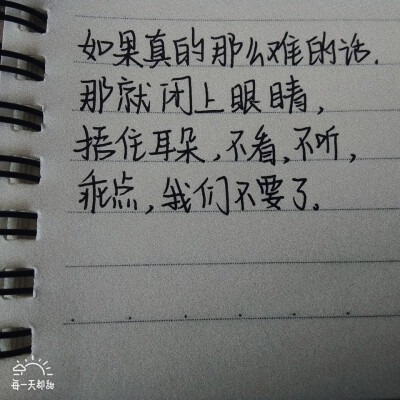 如果真的那么难的话.
那就闭上眼睛,
捂住耳朵,不看,不听,
乖点,我们不要了。
每一天都甜